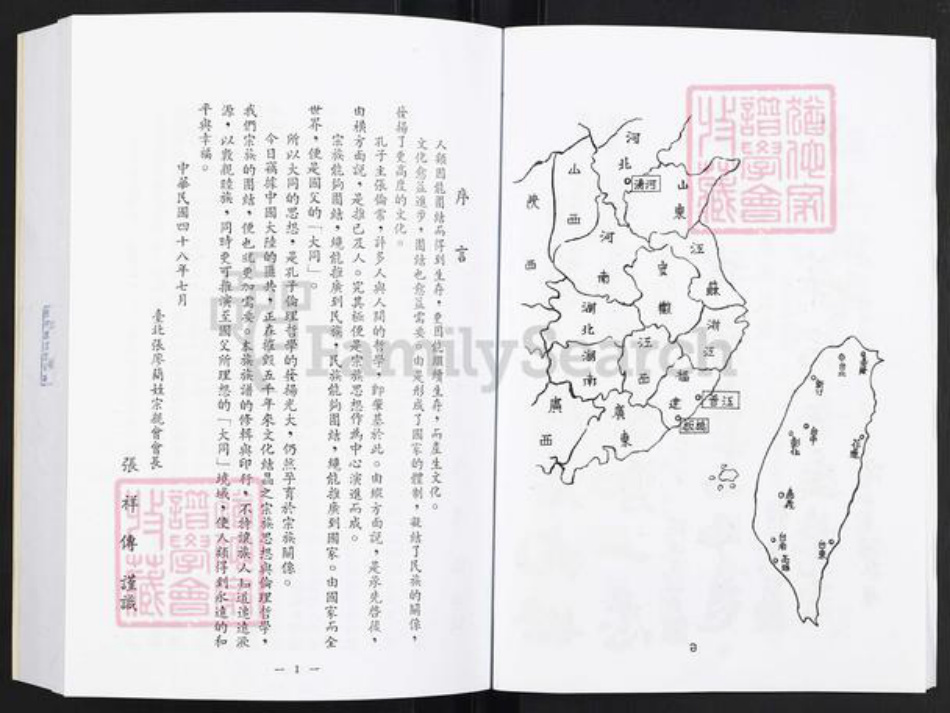 序言
人類因能團結而得到生存,更因能繼續生存,而產生文化。
文化愈益進步,團結也愈益需要。由是形成了國家的體制,凝結了民族的關係,
發揚了更高度的文化。
孔子主張倫常,許多人與人間的哲學,即肇基於此。由縱方面說,是承先啓後,
由橫方面說,是推己及人。究其極便是宗族思想作為中心演進而成。
宗族能夠團結,纔能推廣到民族,民族能夠團結,纔能推廣到國家。由國家而全
世界,便是國父的「大同」。
所以大同的思想,是孔子倫理哲學的發揚光大,仍然孕育於宗族關係。
今日竊據中國大陸的匪共,正在摧毀五千年來文化結晶之宗族思想與倫理哲學,
我們宗族的團結,便也就更加需要。本族族譜的修輯與印行,不特讓族人知道遠遠淵
源,以敦親睦族,同時更可推演至國父所理想的「大同」境域,使人類得到永遠的和
平與幸福。
中華民國四十八年七月
臺北張廖簡姓宗親會會長
張祥傳謹識
— 1 —
河北
湯河
山東
山西
陝西
河南
江蘇
安徽
湖北
浙江
江西
湖南
福建
晉江
廣東
廣西
基隆
台北
新竹
台中
彰化
花蓮
嘉義
台南
高雄
台東
譜學會
收藏
FamilySearch